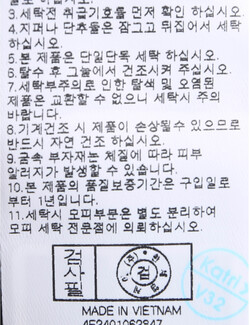 3.세탁전 취급기호를 먼저 확인 하십시오.
4.지퍼나 단추등은 잠그고 뒤집어서 세탁
하십시오.
5.본 제품은 단일단독 세탁 하십시오.
6.탈수 후 그늘에서 건조시켜 주십시오.
7.세탁부주의로 인한 탈색 및 오염된
제품은 교환할 수 없으니 세탁시 주의
바랍니다.
8.기계건조 시 제품이 손상될수 있으므로
반드시 자연 건조 하십시오.
9.금속 부자재는 체질에 따라 피부
알러지가 발생할 수 있습니다.
10.본 제품의 품질보증기간은 구입일로
부터 1년입니다.
11.세탁시 모피부분은 별도 분리하여
모피 세탁 전문점에 의뢰하십시오.
검사필
검
MADE IN VIETNAM
Katri
V32